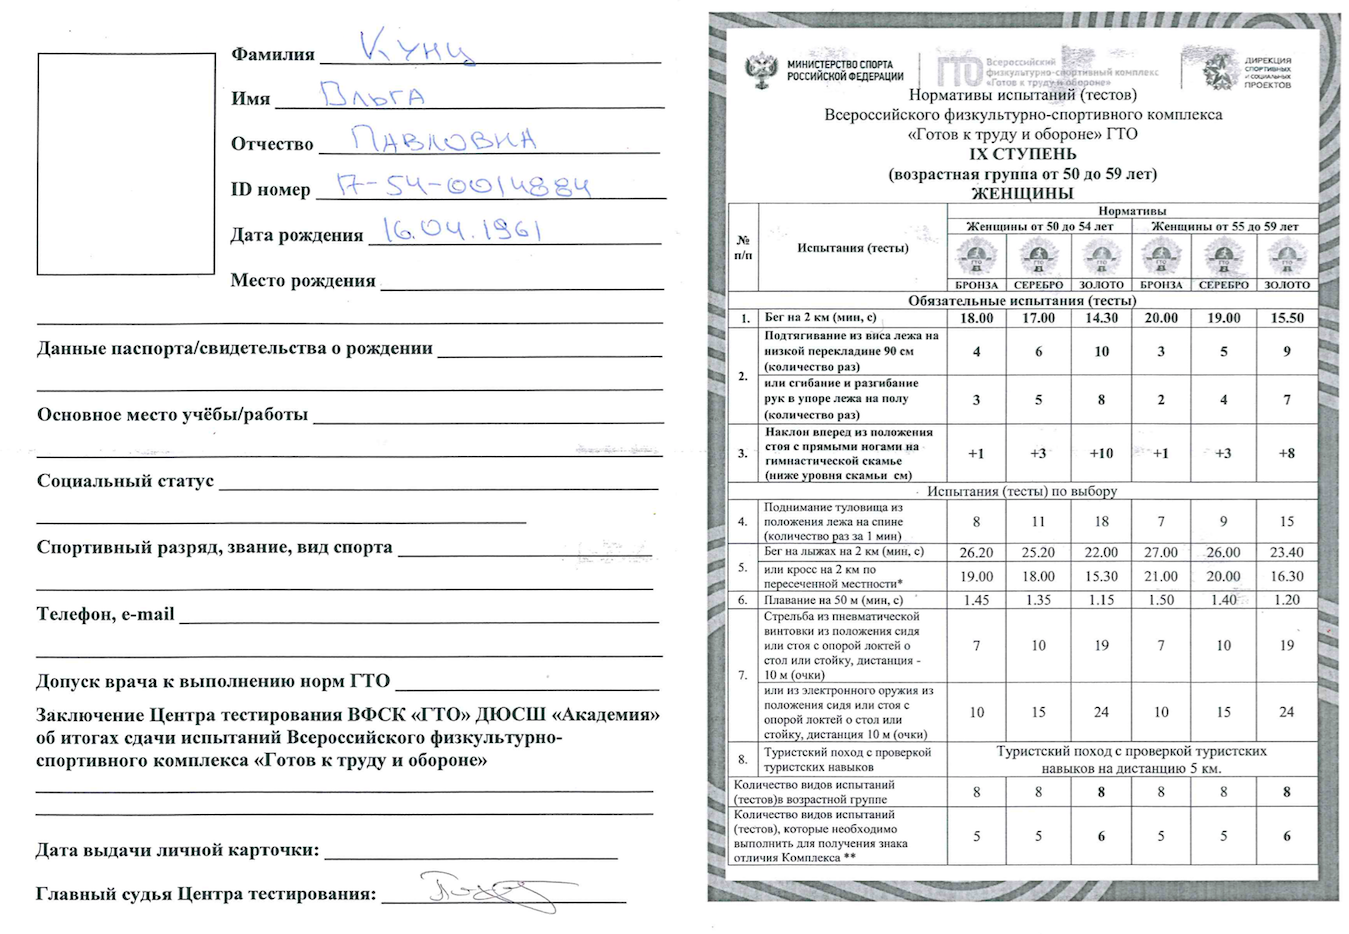 Фамилия Кунц
Имя Ольга
Отчество Павловна
ID номер 17-54-0014884
Дата рождения 16.04.1961
Место рождения
Данные паспорта/свидетельства о рождении
Основное место учёбы/работы
Социальный статус
Спортивный разряд, звание, вид спорта
Телефон, e-mail
Допуск врача к выполнению норм ГТО
Заключение Центра тестирования ВФСК «ГТО» ДЮСШ «Академия»
об итогах сдачи испытаний Всероссийского физкультурно-
спортивного комплекса «Готов к труду и обороне»
Дата выдачи личной карточки:
Главный судья Центра тестирования:
МИНИСТЕРСТВО СПОРТА
РОССИЙСКОЙ ФЕДЕРАЦИИ
ГТО
Всероссийский
физкультурно-спортивный комплекс
«Готов к труду и обороне»
ДИРЕКЦИЯ
СПОРТИВНЫХ
И СОЦИАЛЬНЫХ
ПРОЕКТОВ
Нормативы испытаний (тестов)
Всероссийского физкультурно-спортивного комплекса
«Готов к труду и обороне» ГТО
IX СТУПЕНЬ
(возрастная группа от 50 до 59 лет)
ЖЕНЩИНЫ
№ п/п Испытания (тесты) Нормативы
Женщины от 50 до 54 лет Женщины от 55 до 59 лет
БРОНЗА СЕРЕБРО ЗОЛОТО БРОНЗА СЕРЕБРО ЗОЛОТО
Обязательные испытания (тесты)
1. Бег на 2 км (мин, с) 18.00 17.00 14.30 20.00 19.00 15.50
2. Подтягивание из виса лежа на
низкой перекладине 90 см
(количество раз) 4 6 10 3 5 9
или сгибание и разгибание
рук в упоре лежа на полу
(количество раз) 3 5 8 2 4 7
3. Наклон вперед из положения
стоя с прямыми ногами на
гимнастической скамье
(ниже уровня скамьи см) +1 +3 +10 +1 +3 +8
Испытания (тесты) по выбору
4. Поднимание туловища из
положения лежа на спине
(количество раз за 1 мин) 8 11 18 7 9 15
5. Бег на лыжах на 2 км (мин, с) 26.20 25.20 22.00 27.00 26.00 23.40
или кросс на 2 км по
пересеченной местности* 19.00 18.00 15.30 21.00 20.00 16.30
6. Плавание на 50 м (мин, с) 1.45 1.35 1.15 1.50 1.40 1.20
7. Стрельба из пневматической
винтовки из положения сидя
или стоя с опорой локтей о
стол или стойку, дистанция -
10 м (очки) 7 10 19 7 10 19
или из электронного оружия из
положения сидя или стоя с
опорой локтей о стол или
стойку, дистанция 10 м (очки) 10 15 24 10 15 24
8. Туристский поход с проверкой
туристских навыков
Туристский поход с проверкой туристских
навыков на дистанцию 5 км.
Количество видов испытаний
(тестов)в возрастной группе 8 8 8 8 8 8
Количество видов испытаний
(тестов), которые необходимо
выполнить для получения знака
отличия Комплекса ** 5 5 6 5 5 6